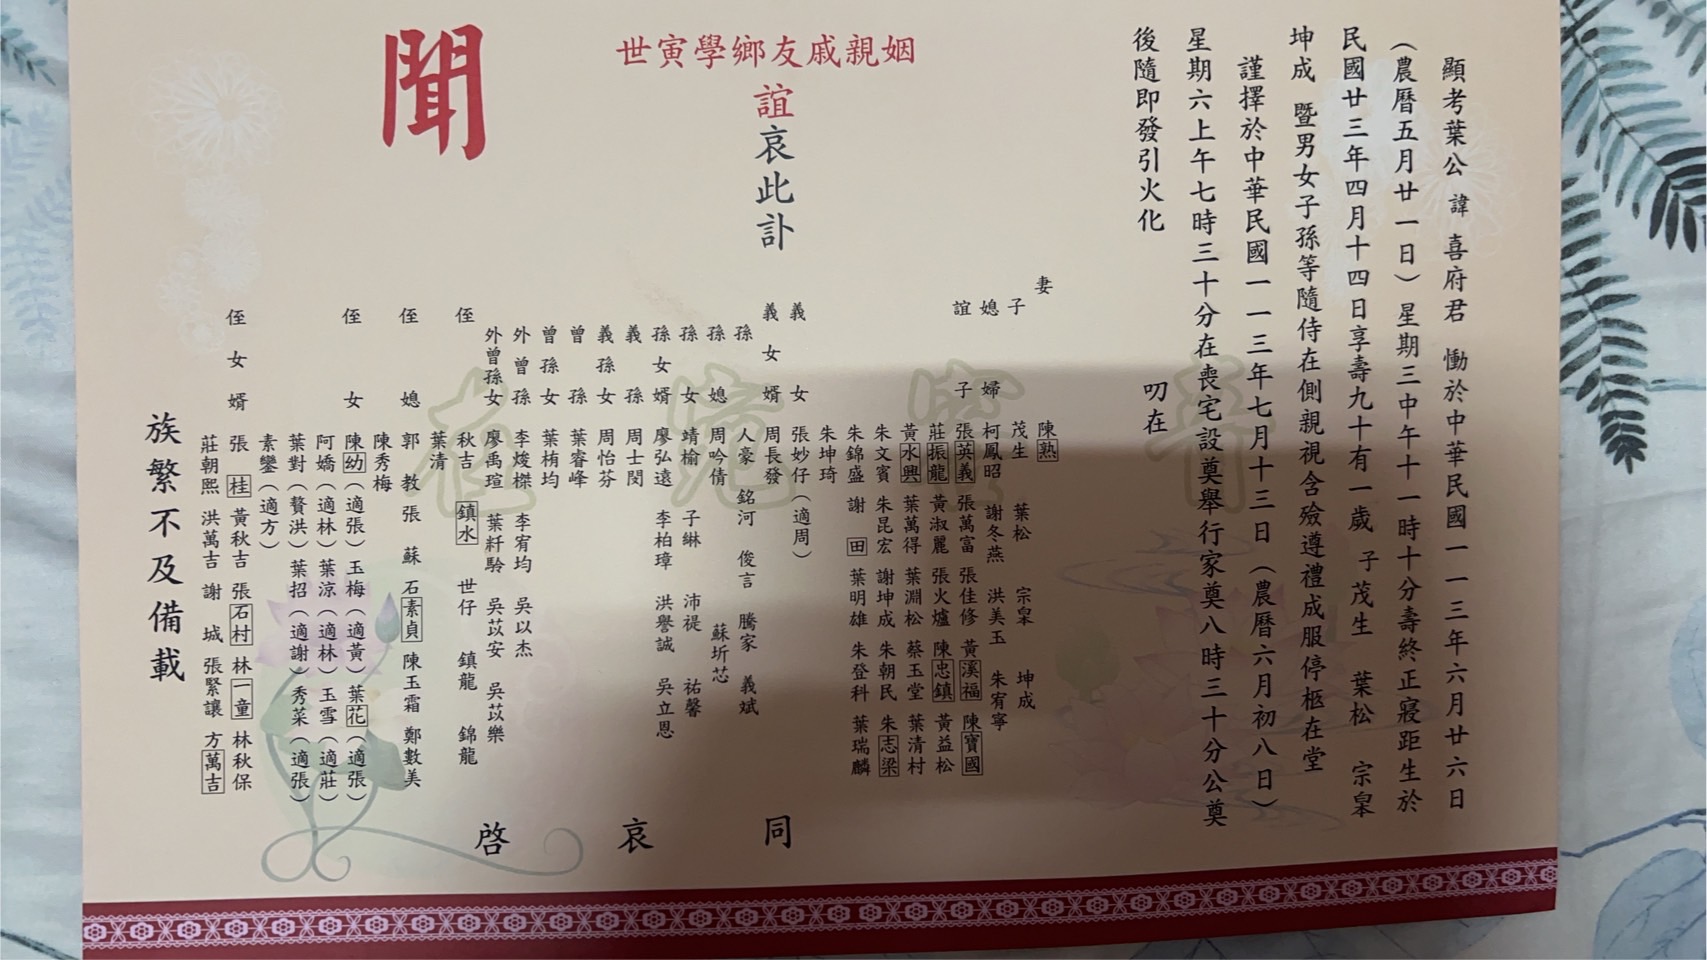 顯考葉公 諱 喜府君 慟於中華民國一一三年六月廿六日
（農曆五月廿一日）星期三中午十一時十分壽終正寢距生於
民國廿三年四月十四日享壽九十有一歲 子 茂生 葉松 宗皐
坤成 暨男女子孫等隨侍在側親視含殮遵禮成服停柩在堂
謹擇於中華民國一一三年七月十三日（農曆六月初八日）
星期六上午七時三十分在喪宅設奠舉行家奠八時三十分公奠
後隨即發引火化
叨在
姻親戚友鄉學寅世
誼哀此訃
聞
妻 陳熟
子 茂生 葉松 宗皐 坤成
媳婦 柯鳳昭 謝冬燕 洪美玉 朱宥寧
誼子 張英義 張萬富 張佳修 黃溪福 陳寶國
莊振龍 黃淑麗 張火爐 陳忠鎮 黃益松
黃水興 葉萬得 葉淵松 蔡玉堂 葉清村
朱文賓 朱昆宏 謝坤成 朱朝民 朱志梁
朱錦盛 謝田 葉明雄 朱登科 葉瑞麟
朱坤琦
義女 張妙仔（適周）
義女婿 周長發
孫 人豪 銘河 俊言 騰家 義斌
孫媳 周吟倩 蘇圻芯
孫女 靖榆 子綝 沛禔 祐馨
孫女婿 廖弘遠 李柏璋 洪譽誠 吳立恩
義孫 周士閔
義孫女 周怡芬
曾孫 葉睿峰
曾孫女 葉栯均
外曾孫 李焌榤 李宥均 吳以杰
外曾孫女 廖禹瑄 葉粁聆 吳苡安 吳苡樂
侄 秋吉 鎮水 世仔 鎮龍 錦龍
葉清
侄媳 郭教 張蘇 石素貞 陳玉霜 鄭數美
陳秀梅
侄女 陳幼（適張）玉梅（適黃）葉花（適張）
阿嬌（適林）葉涼（適林）玉雪（適莊）
葉對（贅洪）葉招（適謝）秀菜（適張）
素鑾（適方）
侄女婿 張桂 黃秋吉 張石村 林一童 林秋保
莊朝熙 洪萬吉 謝城 張緊讓 方萬吉
族繁不及備載
同哀啓